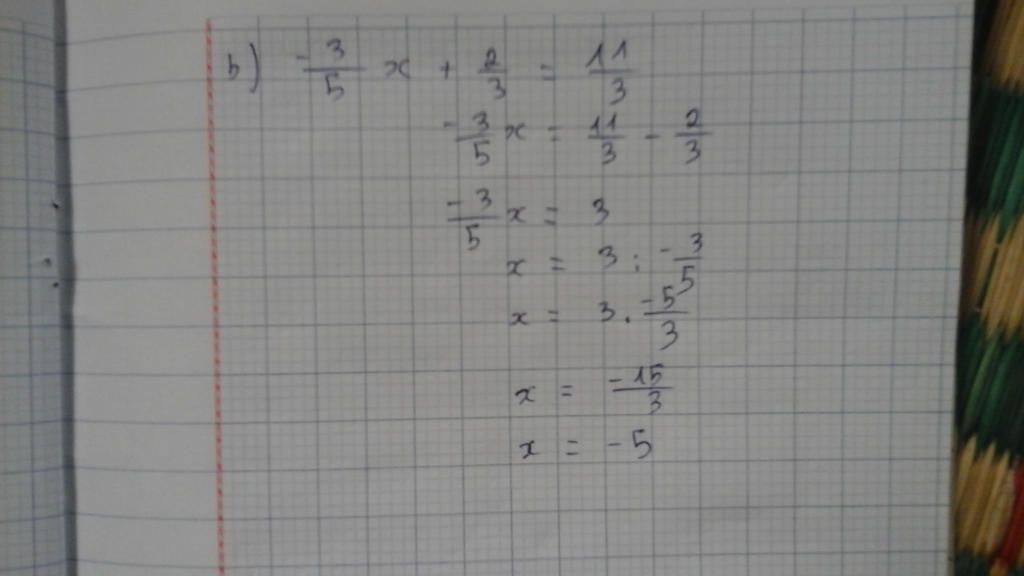 b) -3/5 x + 2/3 = 11/3
-3/5 x = 11/3 - 2/3
-3/5 x = 3
x = 3 : -3/5
x = 3 . -5/3
x = -15/3
x = -5